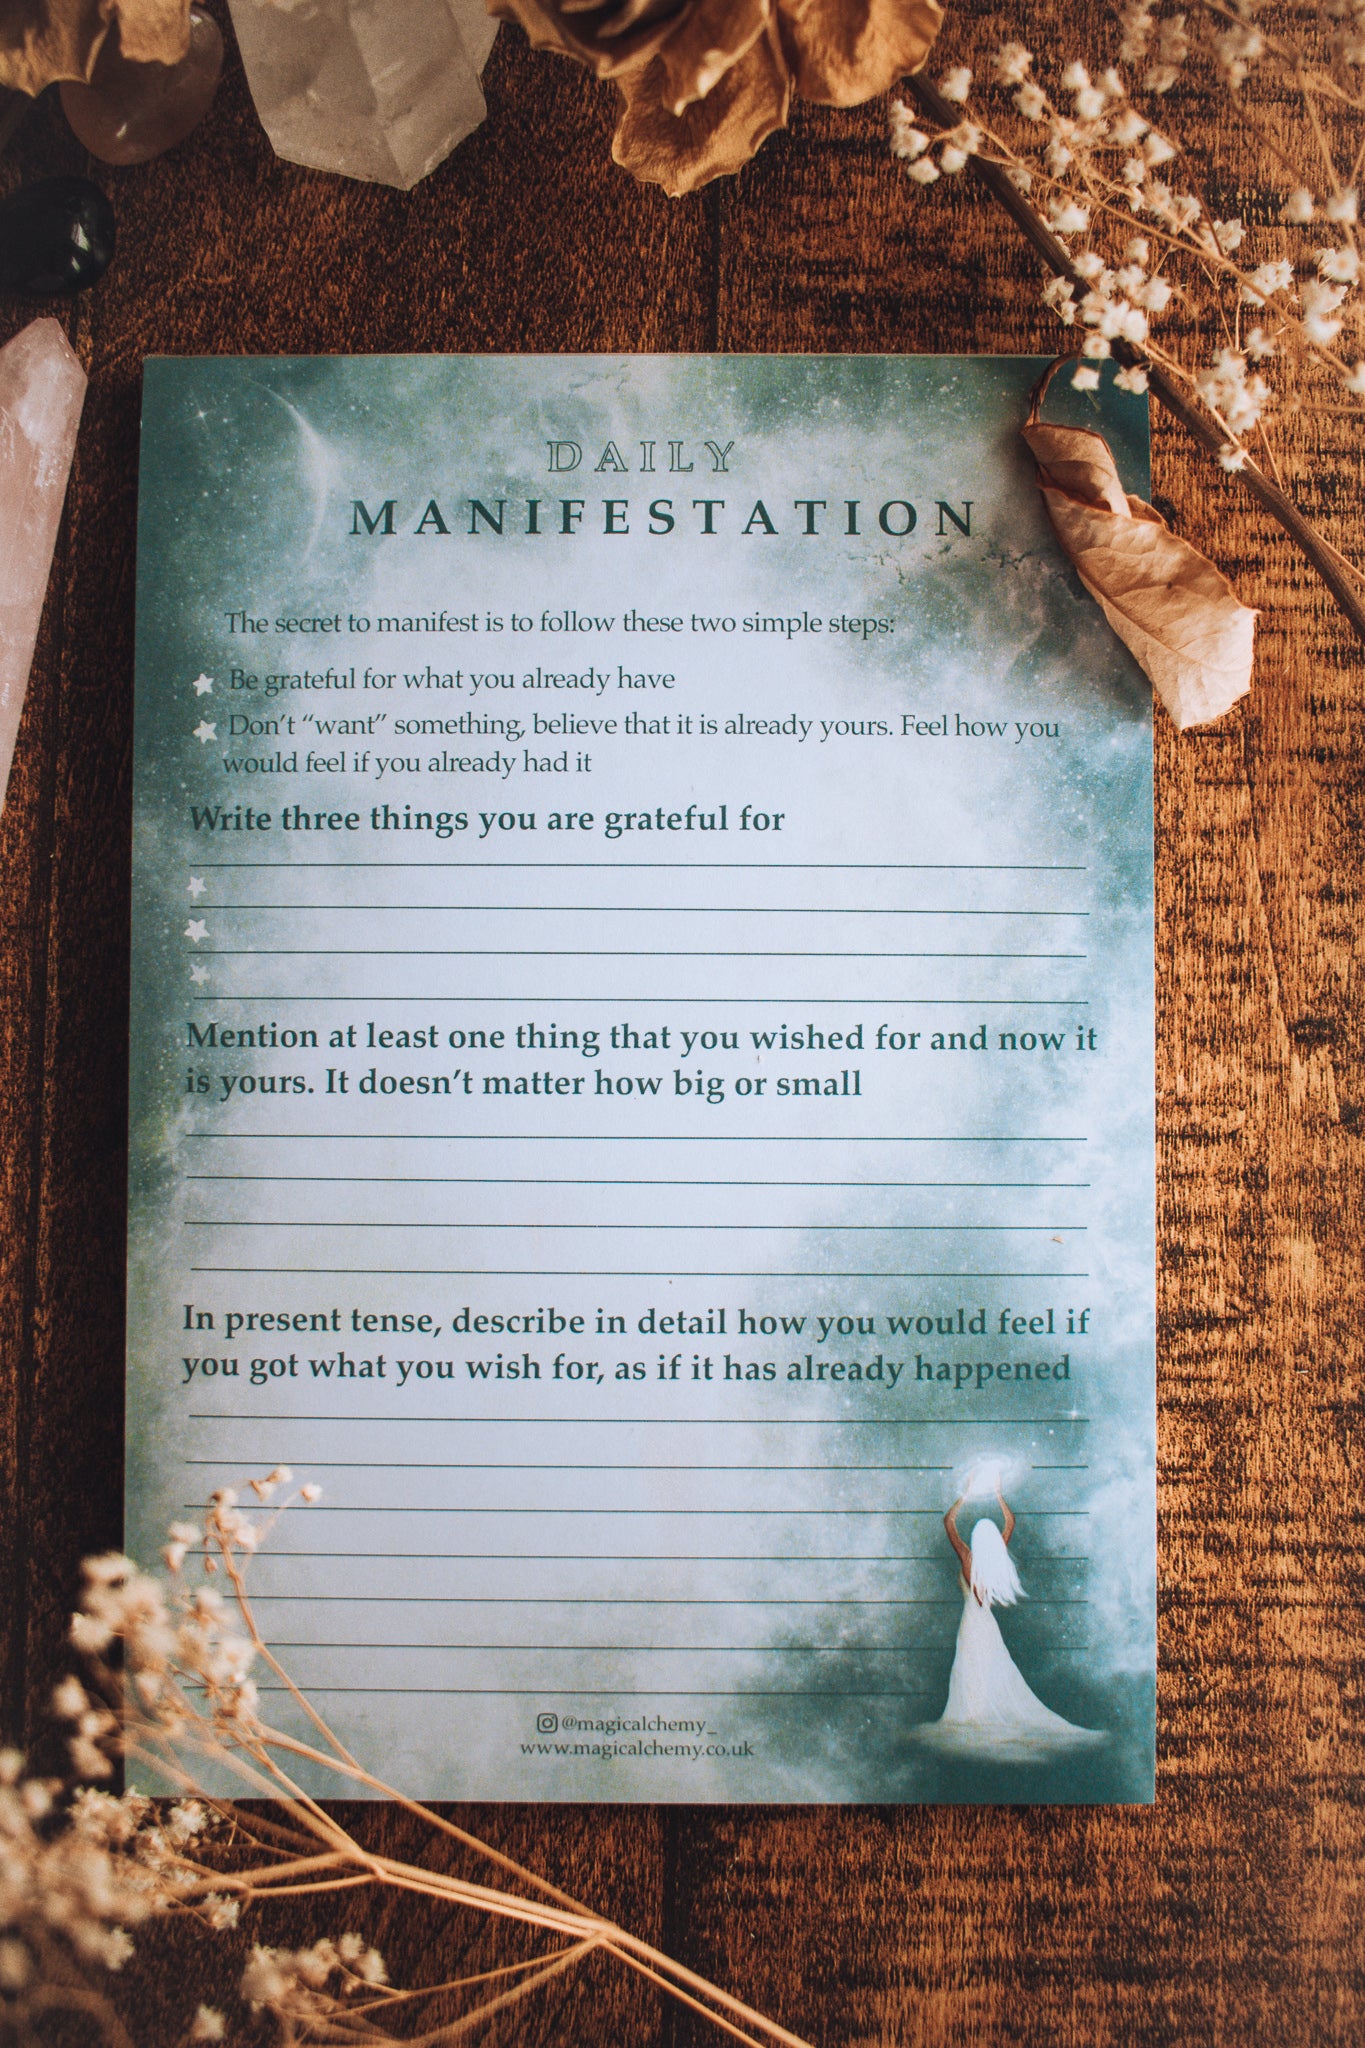 DAILY
MANIFESTATION
The secret to manifest is to follow these two simple steps:
Be grateful for what you already have
Don't “want” something, believe that it is already yours. Feel how you
would feel if you already had it
Write three things you are grateful for
Mention at least one thing that you wished for and now it
is yours. It doesn't matter how big or small
In present tense, describe in detail how you would feel if
you got what you wish for, as if it has already happened
@magicalchemy_
www.magicalchemy.co.uk